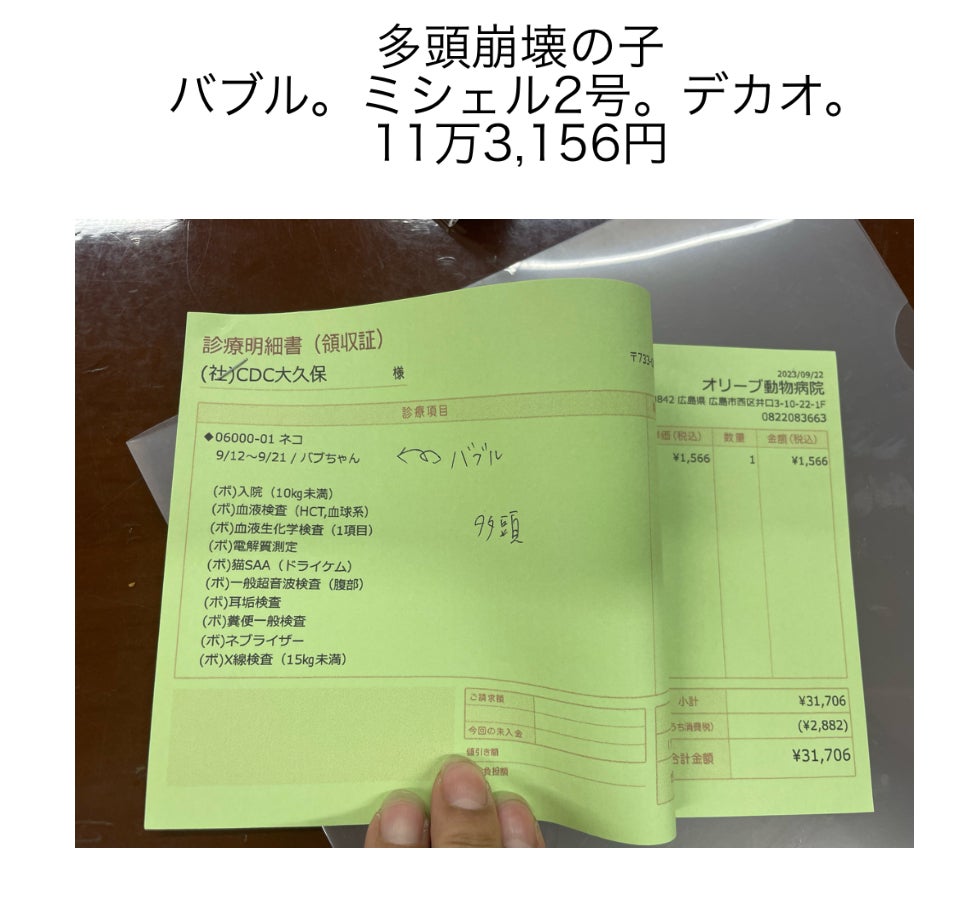 多頭崩壊の子
バブル。ミシェル2号。デカオ。
11万3,156円
診療明細書（領収証）
(社)CDC大久保 様
診療項目
◆06000-01 ネコ
9/12～9/21 / バブちゃん
バブル
(ボ)入院（10kg未満）
(ボ)血液検査（HCT,血球系）
(ボ)血液生化学検査（1項目）
多頭
(ボ)電解質測定
(ボ)猫SAA（ドライケム）
(ボ)一般超音波検査（腹部）
(ボ)耳垢検査
(ボ)糞便一般検査
(ボ)ネブライザー
(ボ)X線検査（15kg未満）
ご請求額
今回の未入金
値引き額
負担額
〒733-
2023/09/22
オリーブ動物病院
842 広島県 広島市西区井口3-10-22-1F
0822083663
価(税込) 数量 金額(税込)
¥1,566 1 ¥1,566
小計 ¥31,706
うち消費税) (¥2,882)
合計金額 ¥31,706